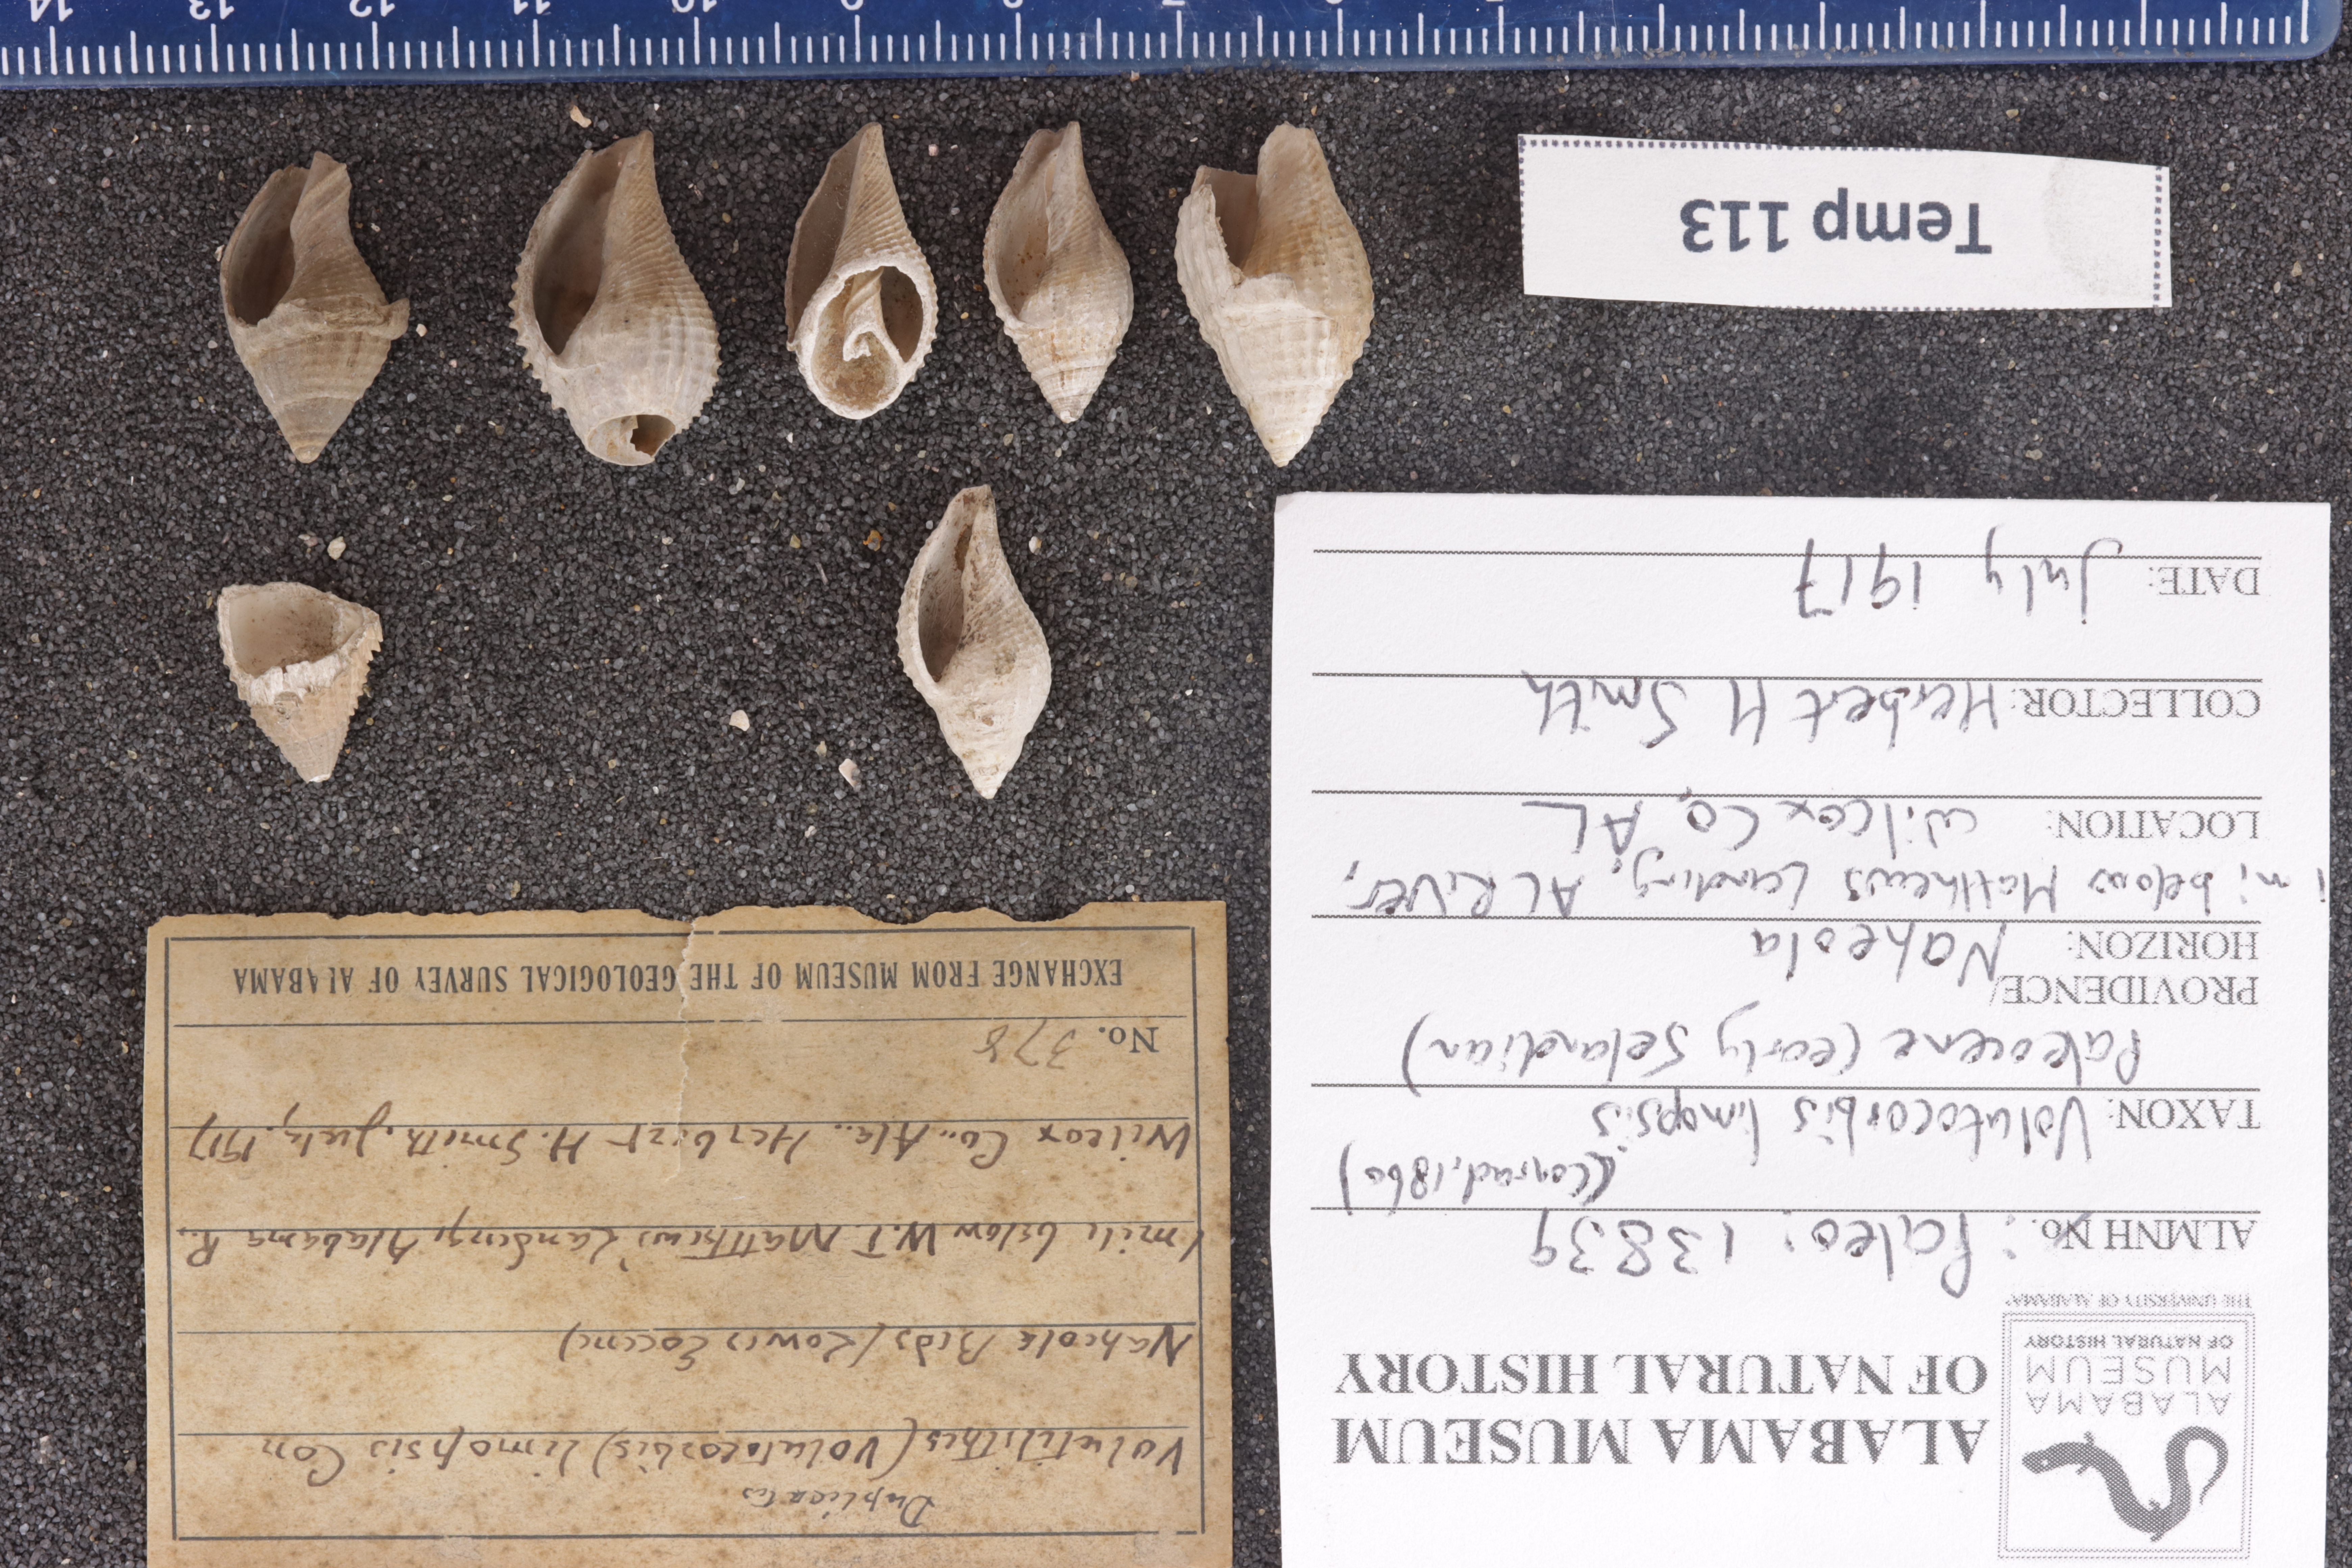 ALABAMA MUSEUM
OF NATURAL HISTORY
ALABAMA
MUSEUM
OF NATURAL HISTORY
THE UNIVERSITY OF ALABAMA
ALMNH No.: Paleo: 13839
(Conrad, 1860)
TAXON: Volutocorbis limopsis
Paleocene (early Selandian)
PROVIDENCE/
HORIZON: Naheola
1 mi below Matthews Landing, AL River,
LOCATION: Wilcox Co, AL
COLLECTOR: Herbert H Smith
DATE: July 1917
Duplicates
Volutilithes (Volutocorbis) limopsis Con
Naheola Beds (Lower Eocene)
1 mile below W.T. Matthews' Landing, Alabama R.
Wilcox Co., Ala. Herbert H. Smith. July, 1917
No. 378
EXCHANGE FROM MUSEUM OF THE GEOLOGICAL SURVEY OF ALABAMA
Temp 113
7 8 9 10 11 12 13 14